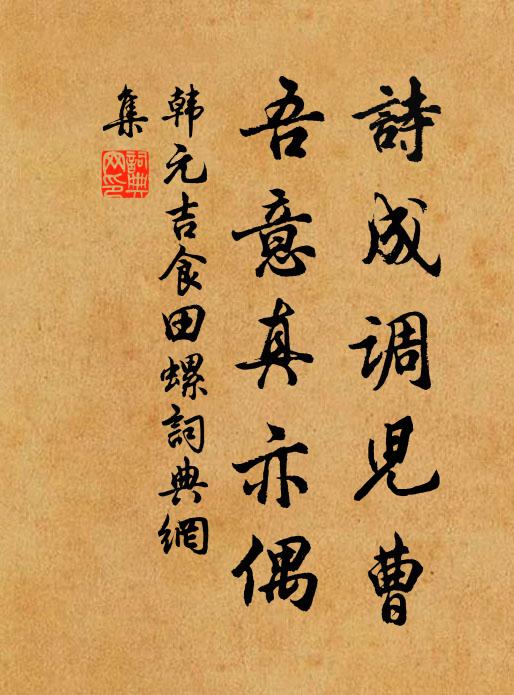 詩成调兒曹
吾意真亦偶
韩元吉食田螺詞典網
集
詞典
网印